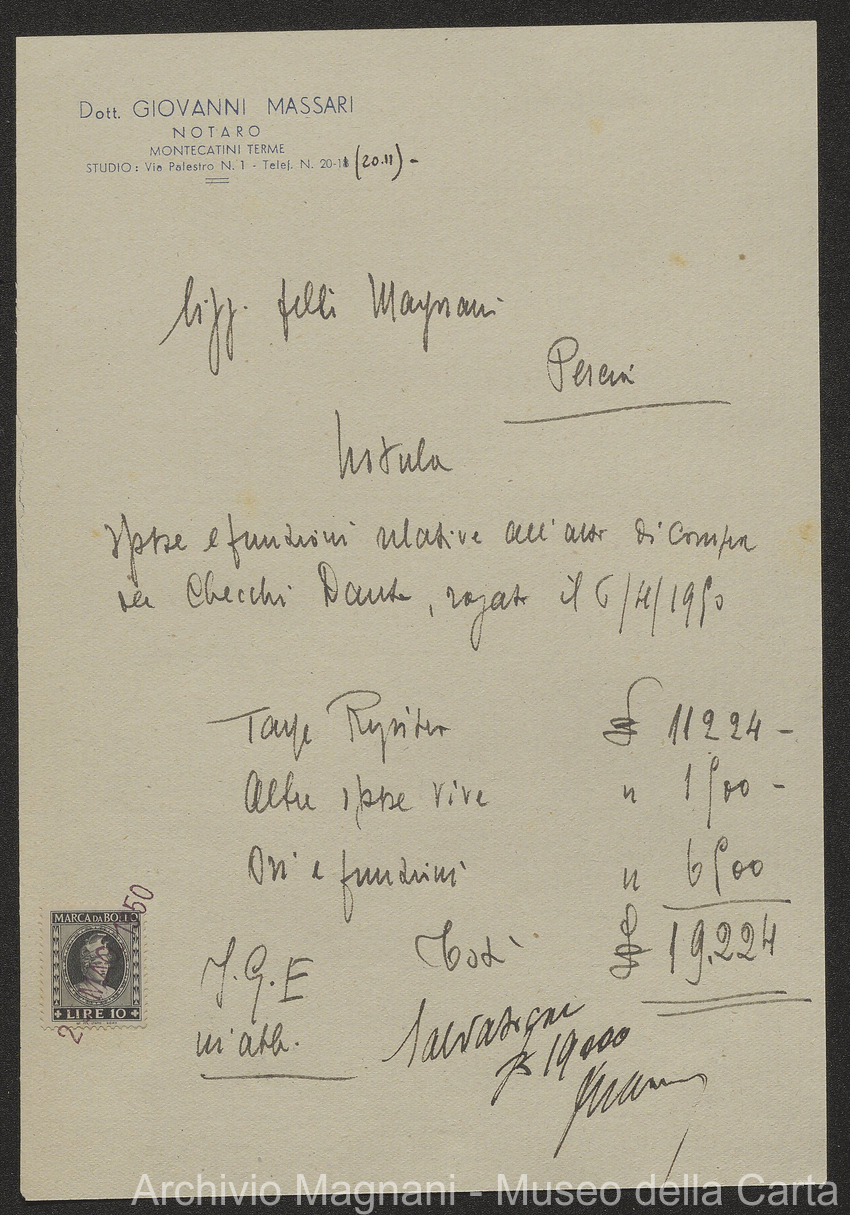 Dott. GIOVANNI MASSARI
NOTARO
MONTECATINI TERME
STUDIO: Via Palestro N. 1 - Telef. N. 20-11 (20.11) -
F.lli Magnani
Pescia
Notula
Spese e funzioni relative all'atto di compra
da Checchi Dante, rogato il 6/4/1950
Tassa Registro £ 11224 -
Altre spese vive " 1500 -
Dri e funzioni " 6500
Totale £ 19.224
I.G.E
in abb.
£ 19000
MARCA DA BOLLO
LIRE 10
50
Archivio Magnani - Museo della Carta